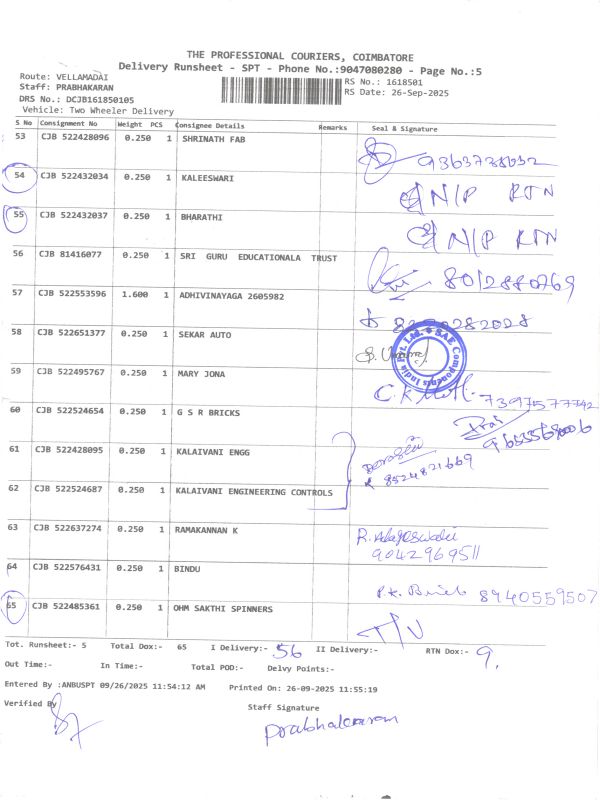 THE PROFESSIONAL COURIERS, COIMBATORE
Delivery Runsheet - SPT - Phone No.:9047080280 - Page No.:5
Route: VELLAMADAI
RS No.: 1618501
Staff: PRABHAKARAN
RS Date: 26-Sep-2025
DRS No.: DCJB161850105
Vehicle: Two Wheeler Delivery
S No Consignment No Weight PCS Consignee Details Remarks Seal & Signature
53 CJB 522428096 0.250 1 SHRINATH FAB 9363738032
54 CJB 522432034 0.250 1 KALEESWARI N/P RTN
55 CJB 522432037 0.250 1 BHARATHI N/P RTN
56 CJB 81416077 0.250 1 SRI GURU EDUCATIONALA TRUST 8012880769
57 CJB 522553596 1.600 1 ADHIVINAYAGA 2605982
58 CJB 522651377 0.250 1 SEKAR AUTO
SAE Components India Pvt. Ltd.
59 CJB 522495767 0.250 1 MARY JONA 7397577742
60 CJB 522524654 0.250 1 G S R BRICKS
61 CJB 522428095 0.250 1 KALAIVANI ENGG
8524821669
62 CJB 522524687 0.250 1 KALAIVANI ENGINEERING CONTROLS
63 CJB 522637274 0.250 1 RAMAKANNAN K
9042969511
64 CJB 522576431 0.250 1 BINDU 8940559507
65 CJB 522485361 0.250 1 OHM SAKTHI SPINNERS
Tot. Runsheet:- 5 Total Dox:- 65 I Delivery:- 56 II Delivery:- RTN Dox:- 9,
Out Time:- In Time:- Total POD:- Delvy Points:-
Entered By :ANBUSPT 09/26/2025 11:54:12 AM Printed On: 26-09-2025 11:55:19
Verified By
Staff Signature
Prabhakaran